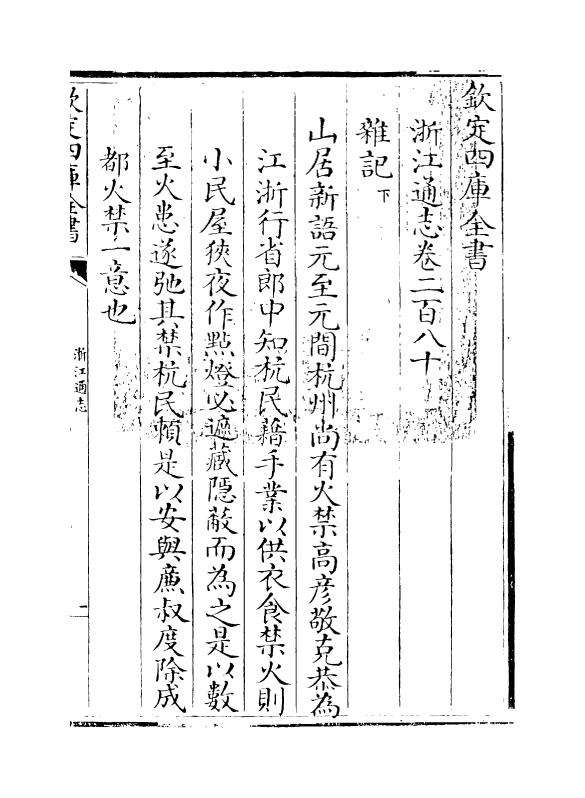 欽定四庫全書
浙江通志卷二百八十
雜記下
山居新語元至元間杭州尚有火禁髙彦敬克恭為
江浙行省郎中知杭民藉手業以供衣食禁火則
小民屋狹夜作㸃燈必遮藏隱蔽而為之是以數
至火患遂弛其禁杭民頼是以安與亷叔度除成
都火禁一意也
欽定四庫全書
浙江通志
一